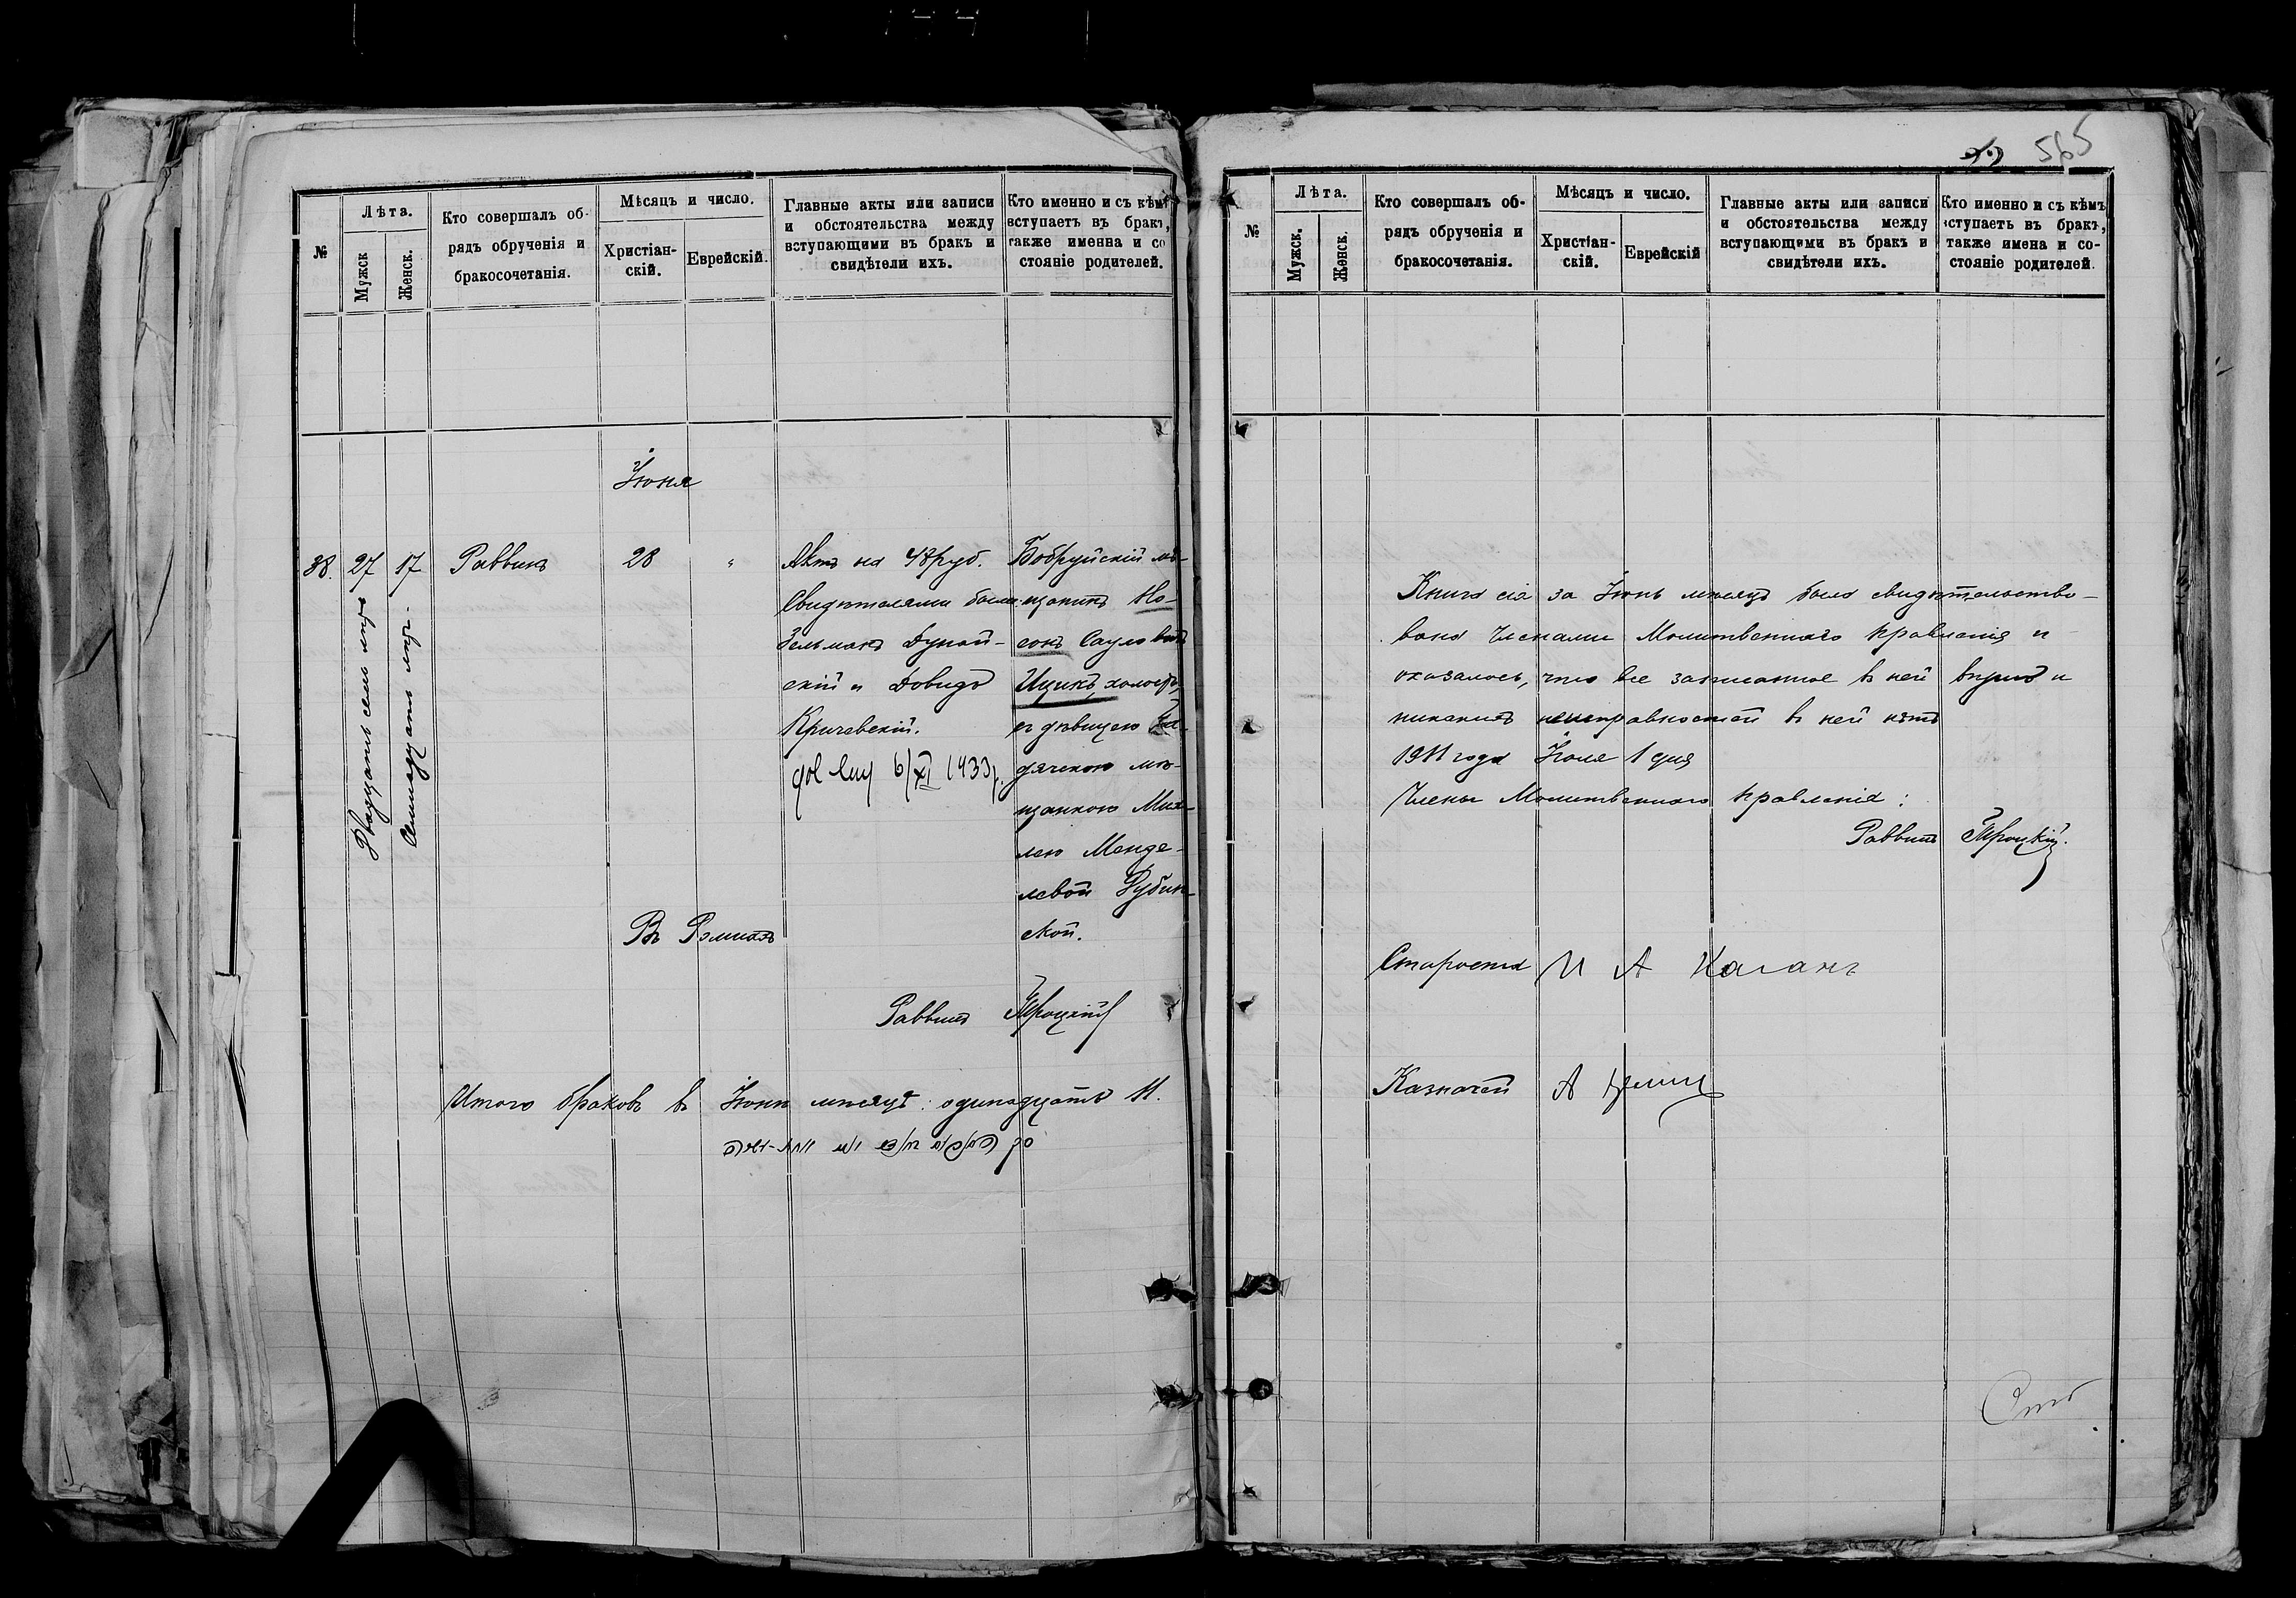 №
Лѣта.
Мужск
Женск.
Кто совершалъ об-
рядъ обрученія и
бракосочетанія.
Мѣсяцъ и число.
Христіан-
скій.
Еврейскій.
Главные акты или записи
и обстоятельства между
вступающими въ бракъ и
свидѣтели ихъ.
Кто именно и съ кѣмъ
вступаетъ въ бракъ,
также имена и со
стояніе родителей.
Іюня
38.
27
Двадцать семь лѣтъ
17
Семнадцать лѣтъ
Раввинъ
28
"
Актъ на 48 руб.
Свидѣтелями были
Зельманъ Дунай-
скій и Довидъ
Кричевскій.
6/XI 1933 г.
Бобруйскій мѣ-
щанинъ Но-
сонъ Сауловъ
Ицикъ, холостъ,
съ дѣвицею Га-
дячскою мѣ-
щанкою Мих-
лею Менде-
левой Рубин-
ской.
Въ Ромнахъ
Раввинъ Троцкій
Итого браковъ въ Іюнѣ мѣсяцѣ: одинадцать 11.
565
№
Лѣта.
Мужск.
Женск.
Кто совершалъ об-
рядъ обрученія и
бракосочетанія.
Мѣсяцъ и число.
Христіан-
скій.
Еврейскій
Главные акты или записи
и обстоятельства между
вступающими въ бракъ и
свидѣтели ихъ.
Кто именно и съ кѣмъ
вступаетъ въ бракъ,
также имена и со-
стояніе родителей.
Книга сія за Іюнь мѣсяцъ была свидѣтельство-
вана Членами Молитвеннаго Правленія и
оказалось, что все записанное въ ней вѣрно и
никакихъ неисправностей въ ней нѣтъ
1911 года Іюля 1 дня
Члены Молитвеннаго Правленія:
Раввинъ Троцкій.
Староста И А Каганъ
Казначей А